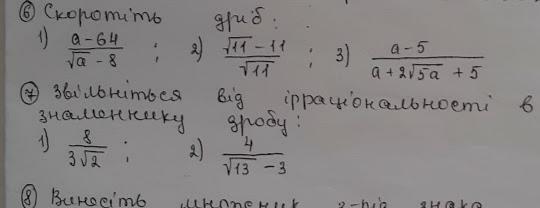 ⑥ Скоротіть дріб:
1) (a-64)/(√a - 8) ; 2) (√11 - 11)/√11 ; 3) (a-5)/(a+2√5a + 5)
⑦ Звільніться від ірраціональності в
знаменнику дробу:
1) 8/(3√2) ; 2) 4/(√13 - 3)
⑧ Винесіть множник з-під знака